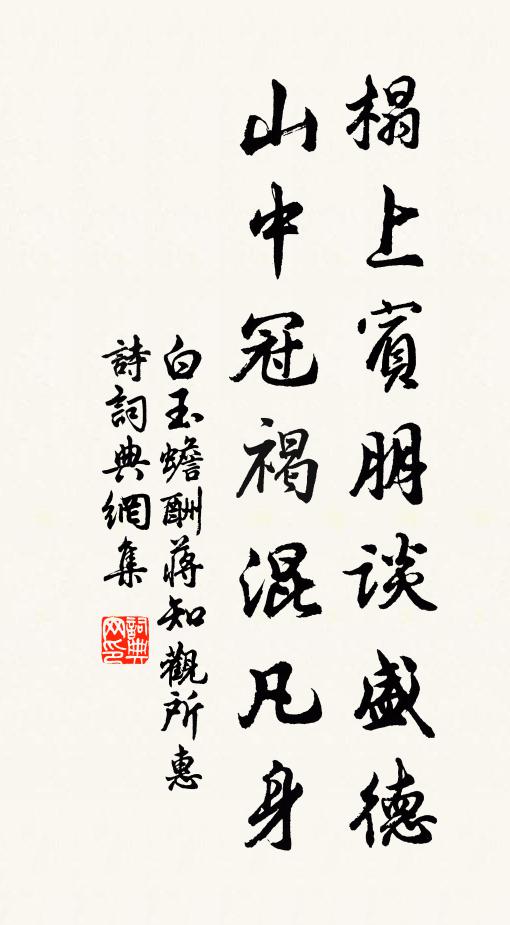 榻上賓朋談盛德
山中冠褐混凡身
白玉蟾酬蔣知觀所惠
詩詞典網集
詞典网印